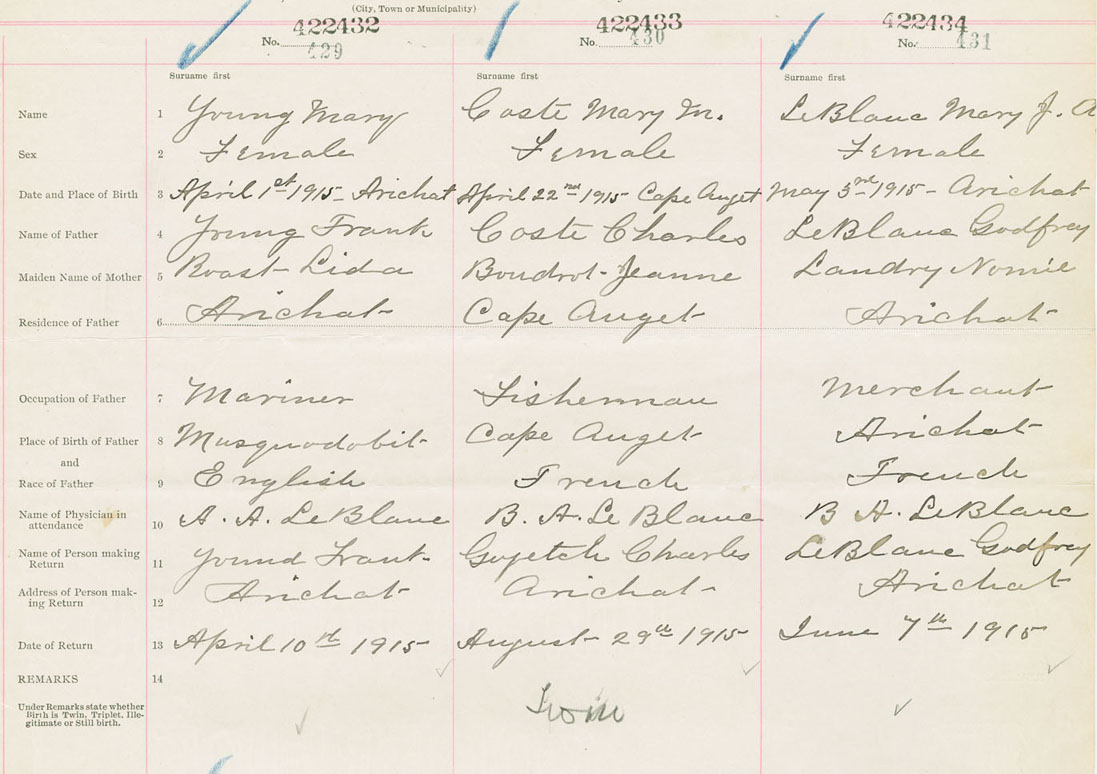 (City, Town or Municipality)
422432 422433 422434
No. 429 No. 430 No. 431
Surname first Surname first Surname first
Name 1 Young Mary Coste Mary M. LeBlanc Mary J. A
Sex 2 Female Female Female
Date and Place of Birth 3 April 1st 1915 - Arichat April 22nd 1915 Cape Auget May 3rd 1915 - Arichat
Name of Father 4 Young Frank Coste Charles LeBlanc Godfrey
Maiden Name of Mother 5 Roast Lida Boudrot Jeanne Landry Nomie
Residence of Father 6 Arichat Cape Auget Arichat
Occupation of Father 7 Mariner Fisherman Merchant
Place of Birth of Father 8 Musquodobit Cape Auget Arichat
and
Race of Father 9 English French French
Name of Physician in
attendance 10 A. A. LeBlanc B. A. Le Blanc B A. LeBlanc
Name of Person making
Return 11 Yound Frank Goyetch Charles LeBlanc Godfrey
Address of Person mak-
ing Return 12 Arichat Arichat Arichat
Date of Return 13 April 10th 1915 August 29th 1915 June 7th 1915
REMARKS 14
Under Remarks state whether
Birth is Twin, Triplet, Ille-
gitimate or Still birth.
Twin